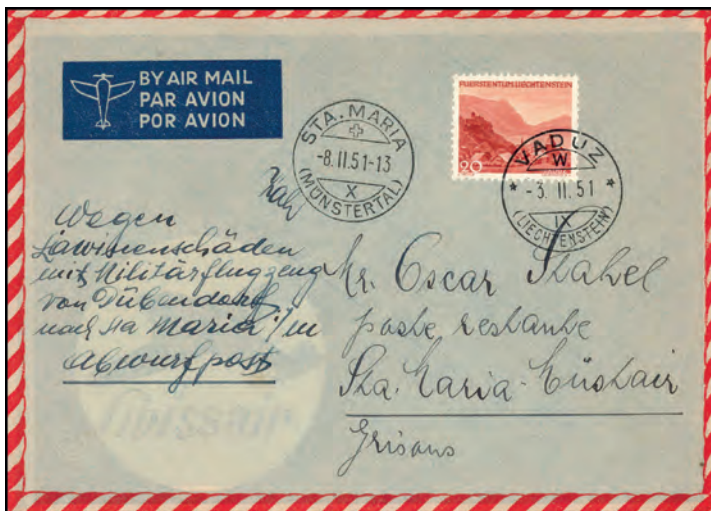 BY AIR MAIL
PAR AVION
POR AVION
STA. MARIA
-8.II.51-13
X
(MÜNSTERTAL)
FUERSTENTUM LIECHTENSTEIN
20
VADUZ
W
-3. II. 51
IX
(LIECHTENSTEIN)
Wegen
Lawinenschäden
mit Militärflugzeug
von Dübendorf
nach Sta Maria i/M
Abwurfpost
Mr. Oscar
poste restante
Sta. Maria-Müstair
Grisons
Swissair